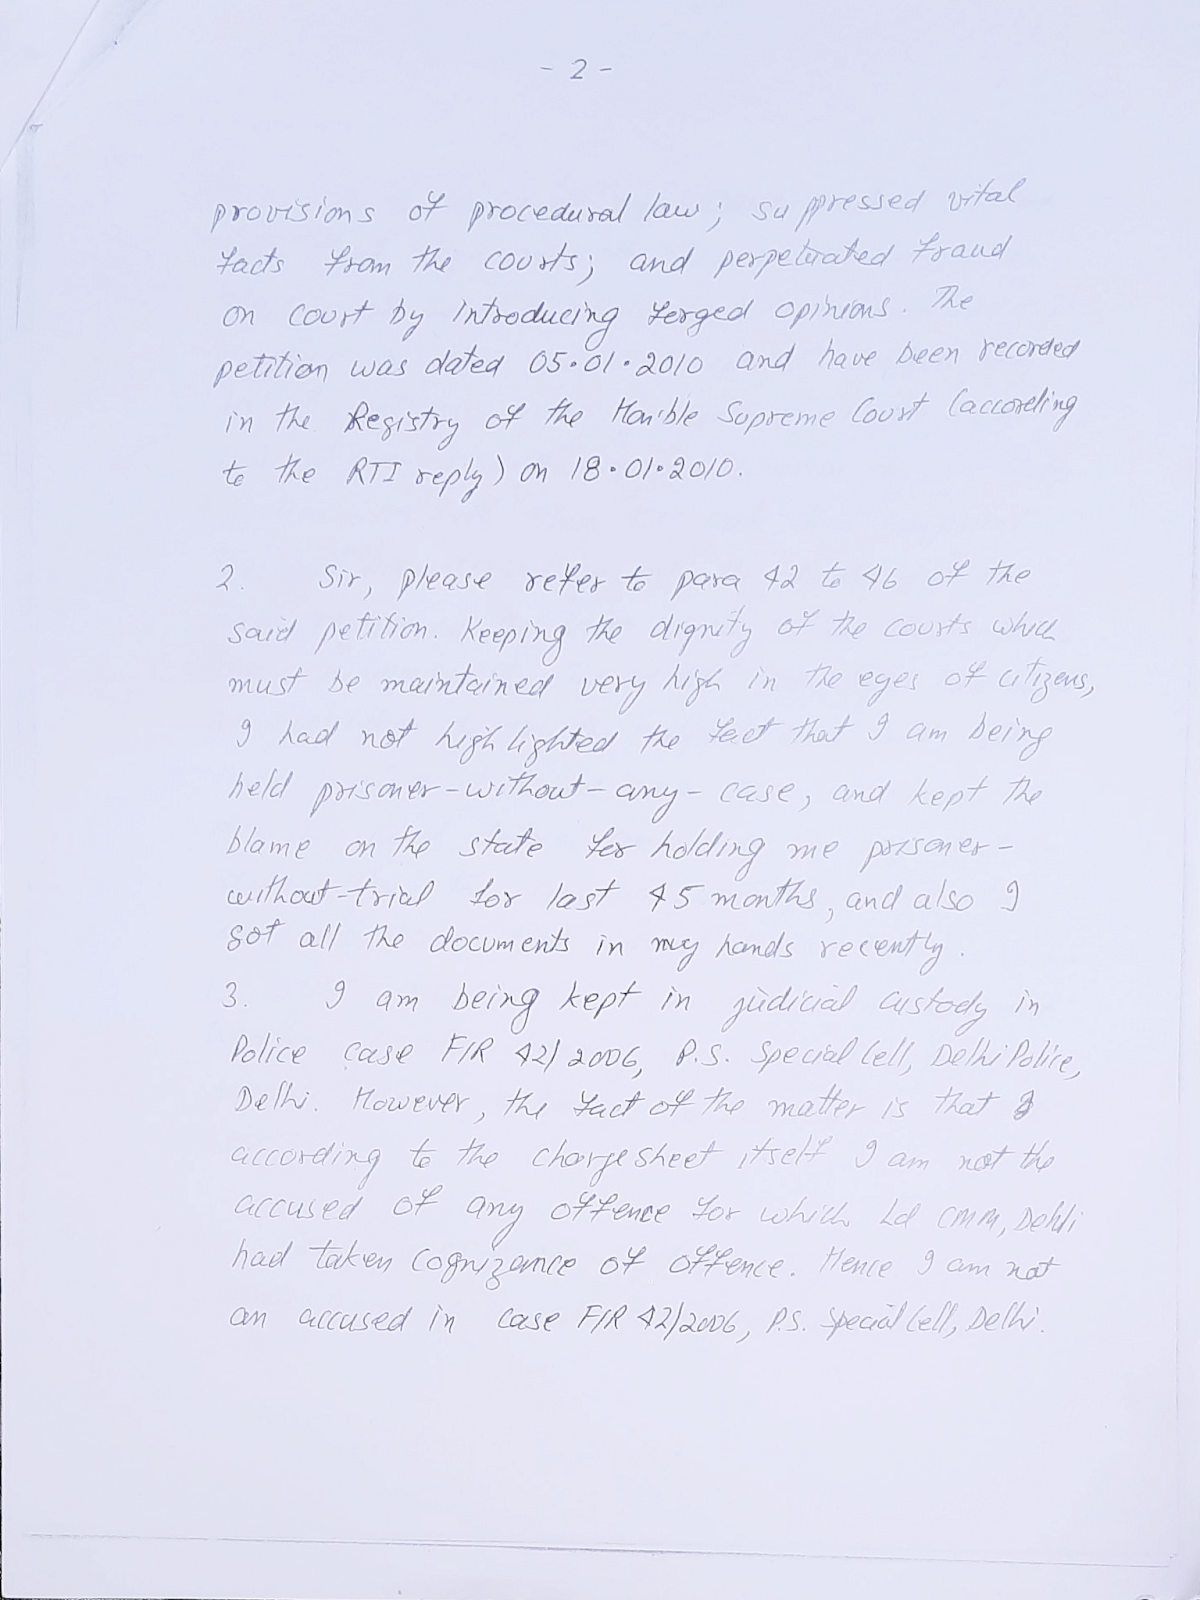 - 2 -
provisions of procedural law; suppressed vital
facts from the courts; and perpetuated fraud
on court by introducing forged opinions. The
petition was dated 05.01.2010 and have been recorded
in the Registry of the Hon'ble Supreme Court (according
to the RTI reply) on 18.01.2010.
2. Sir, please refer to para 42 to 46 of the
said petition. Keeping the dignity of the courts which
must be maintained very high in the eyes of citizens,
I had not highlighted the fact that I am being
held prisoner-without-any-case, and kept the
blame on the state for holding me prisoner-
without-trial for last 45 months, and also I
got all the documents in my hands recently.
3. I am being kept in judicial custody in
Police case FIR 42/2006, P.S. Special Cell, Delhi Police,
Delhi. However, the fact of the matter is that
according to the chargesheet itself I am not the
accused of any offence for which Ld CMM, Dehli
had taken cognizance of offence. Hence I am not
an accused in case FIR 42/2006, P.S. Special Cell, Delhi.